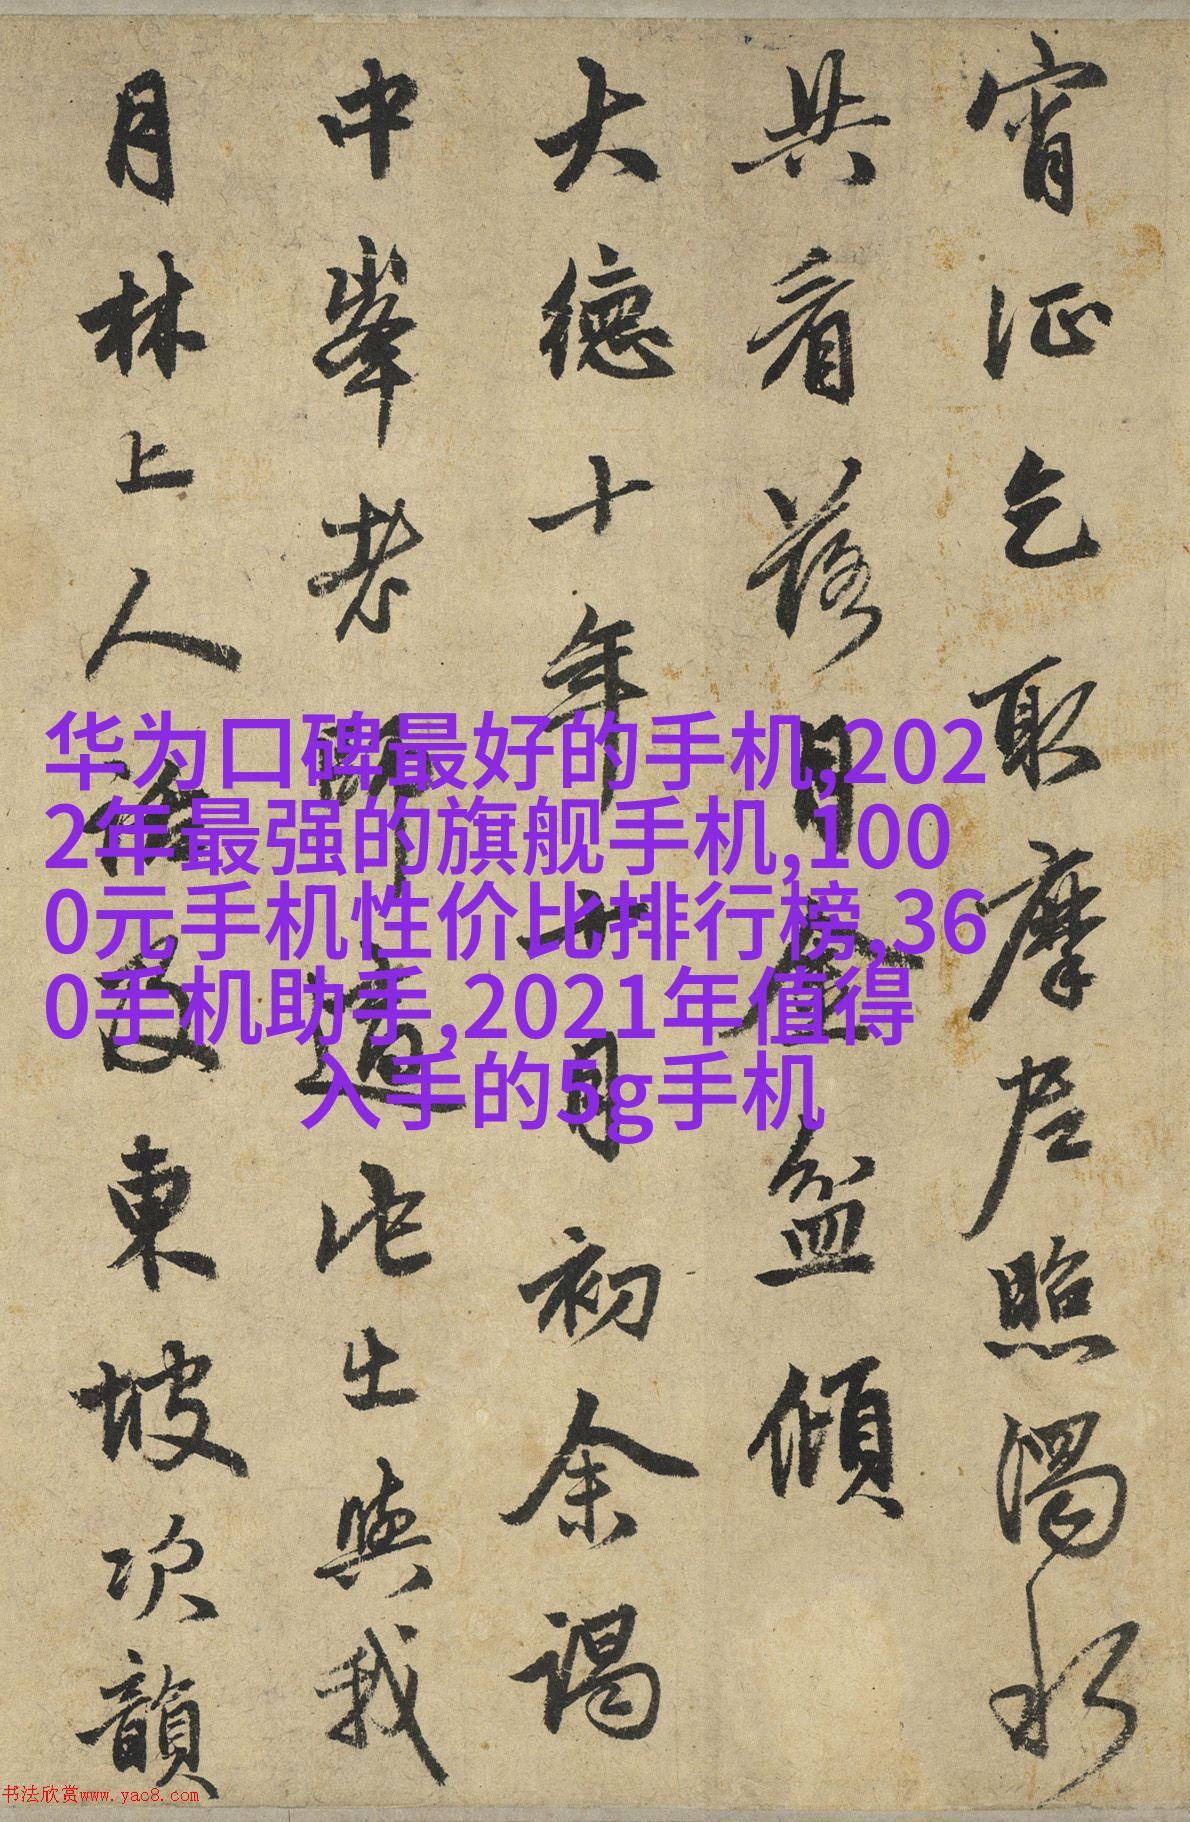 宵征乞取摩尼照濁水
共看落月金盆傾
大德十年 月初余謁
中峯老師適他出與我
月林上人 東坡次韻
华为口碑最好的手机,202
2年最强的旗舰手机,100
0元手机性价比排行榜,36
0手机助手,2021年值得
入手的5g手机
书法欣赏www.yac8.com